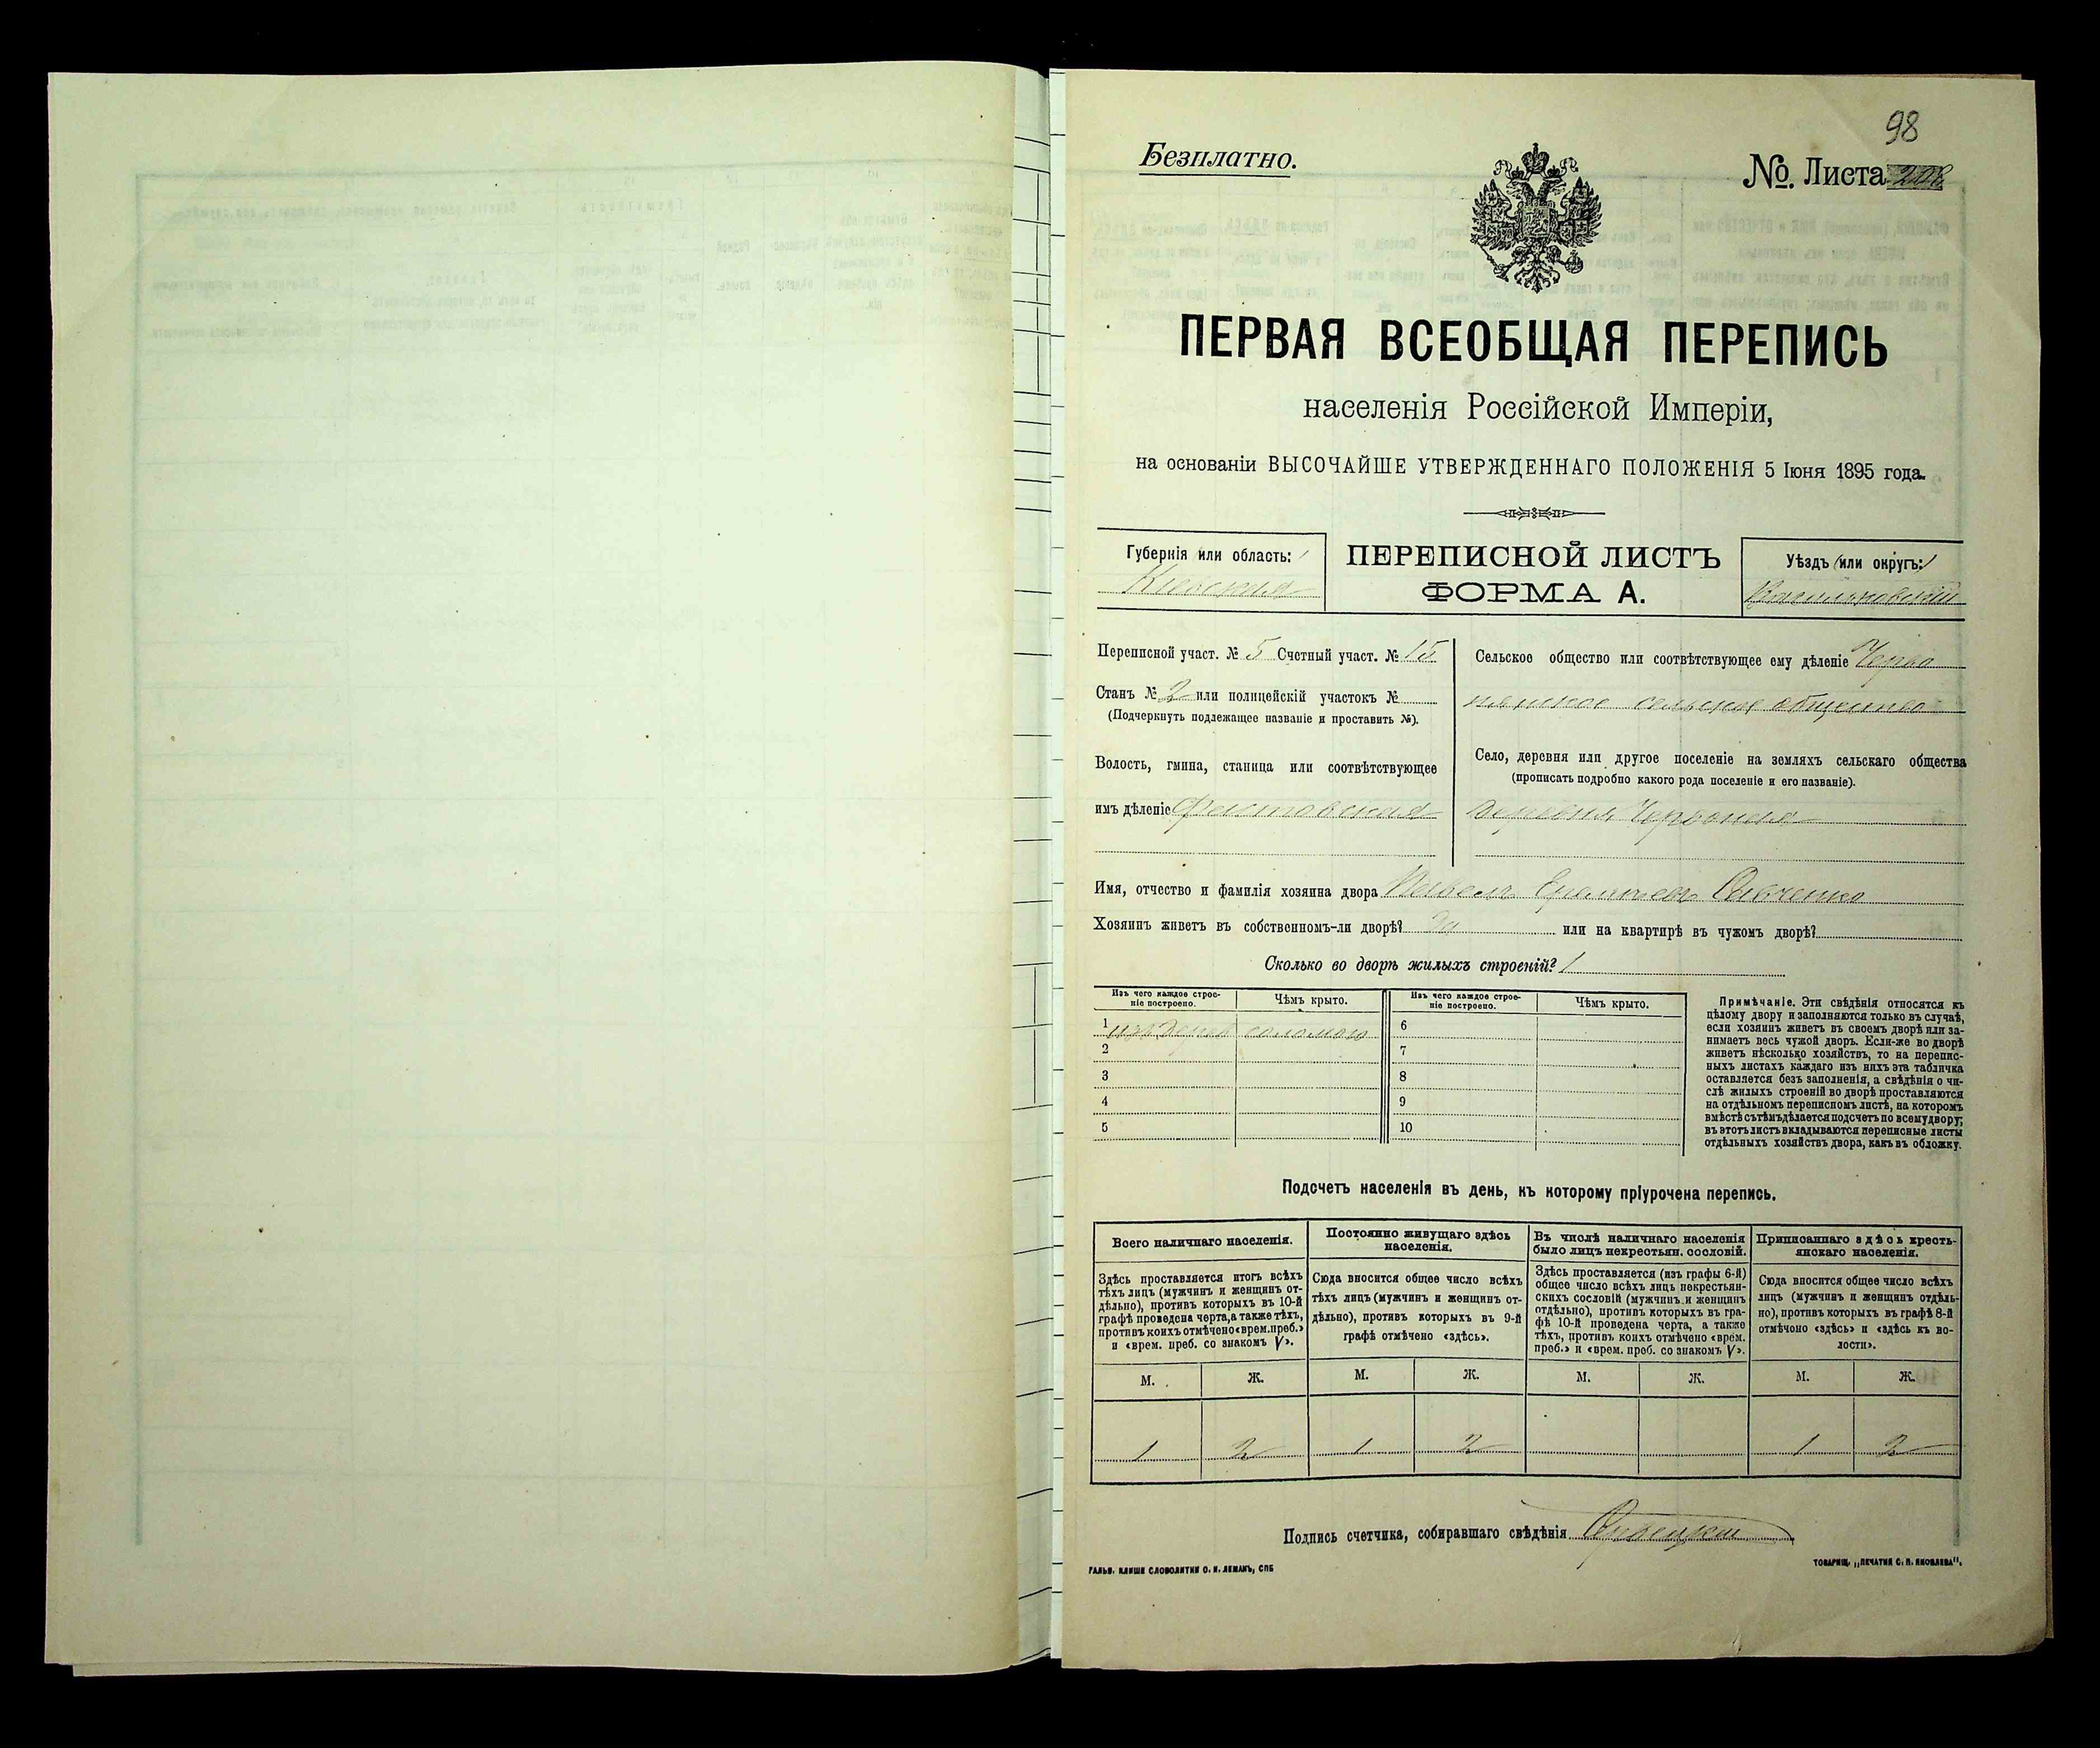 98
Безплатно.
№. Листа
ПЕРВАЯ ВСЕОБЩАЯ ПЕРЕПИСЬ
населенія Россійской Имперіи,
на основаніи ВЫСОЧАЙШЕ УТВЕРЖДЕННАГО ПОЛОЖЕНІЯ 5 Іюня 1895 года.
Губернія или область:
Кіевская
ПЕРЕПИСНОЙ ЛИСТЪ
ФОРМА А.
Уѣздъ или округъ:
Васильковскій
Переписной участ. № 5 Счетный участ. № 15
Станъ № 2 или полицейскій участокъ №
(Подчеркнуть подлежащее названіе и проставить №).
Волость, гмина, станица или соотвѣтствующее
имъ дѣленіе
Сельское общество или соотвѣтствующее ему дѣленіе Черво
нянское сельское общество
Село, деревня или другое поселеніе на земляхъ сельскаго общества
(прописать подробно какого рода поселеніе и его названіе).
деревня Червоная
Имя, отчество и фамилія хозяина двора Павелъ
Хозяинъ живетъ въ собственномъ-ли дворѣ? да или на квартирѣ въ чужомъ дворѣ?
Сколько во дворѣ жилыхъ строеній? 1
Изъ чего каждое строе-
ніе построено.
Чѣмъ крыто.
Изъ чего каждое строе-
ніе построено.
Чѣмъ крыто.
1 изъ дерев соломою
2
3
4
5
6
7
8
9
10
Примѣчаніе. Эти свѣдѣнія относятся къ
цѣлому двору и заполняются только въ случаѣ,
если хозяинъ живетъ въ своемъ дворѣ или за-
нимаетъ весь чужой дворъ. Если-же во дворѣ
живетъ нѣсколько хозяйствъ, то на перепис-
ныхъ листахъ каждаго изъ нихъ эта табличка
оставляется безъ заполненія, а свѣдѣнія о чи-
слѣ жилыхъ строеній во дворѣ проставляются
на отдѣльномъ переписномъ листѣ, на которомъ
вмѣстѣ съ тѣмъ дѣлается подсчетъ по всему двору;
въ этотъ листъ вкладываются переписные листы
отдѣльныхъ хозяйствъ двора, какъ въ обложку.
Подсчетъ населенія въ день, къ которому пріурочена перепись.
Всего наличнаго населенія.
Здѣсь проставляется итогъ всѣхъ
тѣхъ лицъ (мужчинъ и женщинъ от-
дѣльно), противъ которыхъ въ 10-й
графѣ проведена черта, а также тѣхъ,
противъ коихъ отмѣчено «врем. преб.»
и «врем. преб. со знакомъ V».
Постоянно живущаго здѣсь
населенія.
Сюда вносится общее число всѣхъ
тѣхъ лицъ (мужчинъ и женщинъ от-
дѣльно), противъ которыхъ въ 9-й
графѣ отмѣчено «здѣсь».
Въ числѣ наличнаго населенія
было лицъ некрестьян. сословій.
Здѣсь проставляется (изъ графы 6-й)
общее число всѣхъ лицъ некрестьян-
скихъ сословій (мужчинъ и женщинъ
отдѣльно), противъ которыхъ въ гра-
фѣ 10-й проведена черта, а также
тѣхъ, противъ коихъ отмѣчено «врем.
преб.» и «врем. преб. со знакомъ V».
Приписаннаго здѣсь кресть-
янскаго населенія.
Сюда вносится общее число всѣхъ
лицъ (мужчинъ и женщинъ отдѣль-
но), противъ которыхъ въ графѣ 8-й
отмѣчено «здѣсь» и «здѣсь къ во-
лости».
М. Ж. М. Ж. М. Ж. М. Ж.
1 2 1 2 1 2
Подпись счетчика, собиравшаго свѣдѣнія
ГАЛЬВ. КЛИШЕ СЛОВОЛИТНИ О. И. ЛЕМАНЪ, СПБ
ТОВАРИЩ. „ПЕЧАТНЯ С. П. ЯКОВЛЕВА".